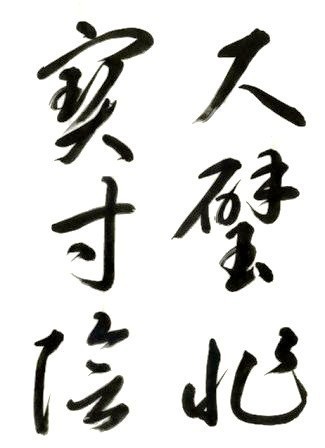 尺璧非
寶寸陰